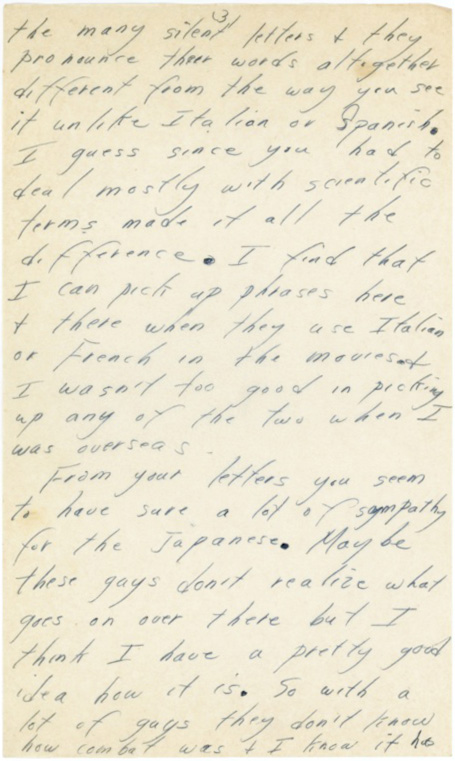 3
the many silent letters & they
pronounce their words altogether
different from the way you see
it unlike Italian or Spanish.
I guess since you had to
deal mostly with scientific
terms made it all the
difference. I find that
I can pick up phrases here
& there when they use Italian
or French in the movies &
I wasn't too good in picking
up any of the two when I
was overseas.
From your letters you seem
to have sure a lot of sympathy
for the Japanese. Maybe
these guys don't realize what
goes on over there but I
think I have a pretty good
idea how it is. So with a
lot of guys they don't know
how combat was & I know it has